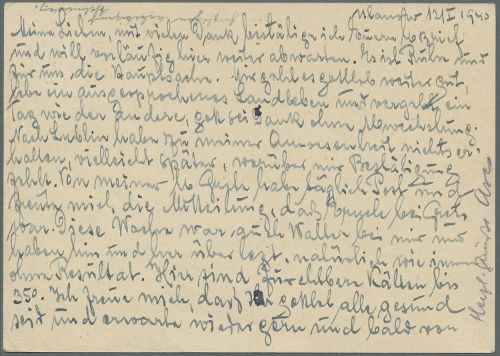 12/I 1940
Meine Lieben, mit vielen Dank bestätige ich Euern
und will vorläufig hier weiter abwarten. Es ist Ruhe und
für uns die Hauptsache. Mir geht es gottlob weiter gut,
lebe ein ausgesprochenes Landleben und vergeht ein
Tag wie der andere, gottseidank ohne Abwechslung.
Nach Lublin habe zu meiner Anwesenheit nichts er-
halten, vielleicht später, worüber mir Bestätigung
fehlt. Von meiner lb habe täglich Post und
freute mich die Mitteilung, daß bei
war. Diese Woche war auch Walter bei mir und
haben hin und her überlegt, natürlich wie immer
ohne Resultat. Hier sind furchtbare Kälten bis
35°. Ich freue mich, daß Ihr gottlob alle gesund
seit und erwarte wieder gern und bald von
Herzl. Grüsse